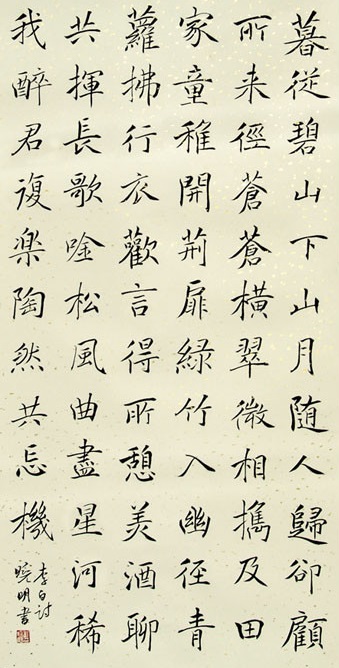 暮從碧山下山月随人歸卻顧
所来徑蒼蒼橫翠微相攜及田
家童稚開荆扉緑竹入幽径青
蘿拂行衣歡言得所憩美酒聊
共揮長歌唫松風曲盡星河稀
我醉君復楽陶然共忘機
李白詩
曉明書